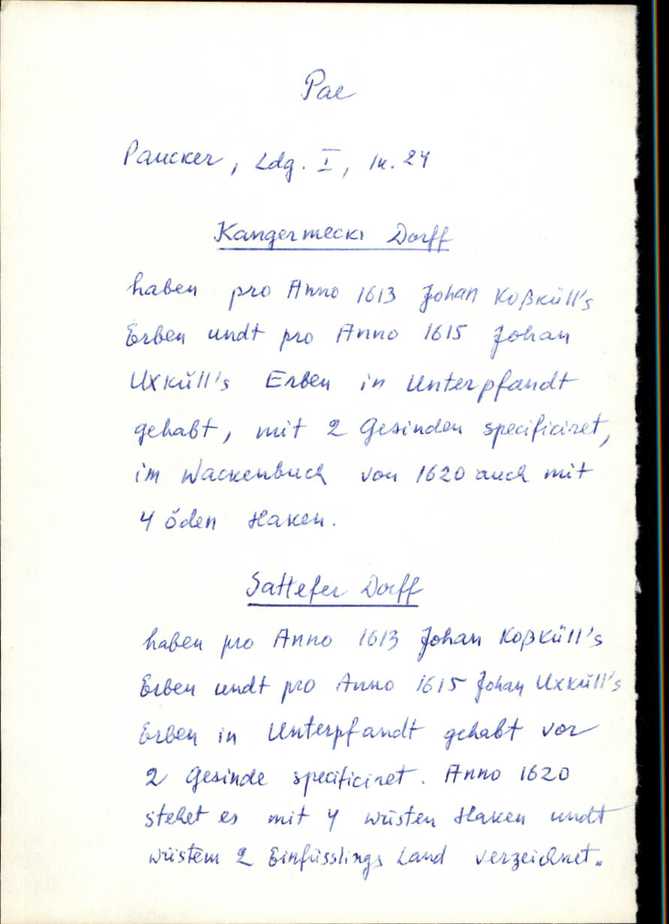 Pae
Paucker, Ldg. I, lk. 24
Kangermecki Dorff
haben pro Anno 1613 Johan Koßküll's
Erben undt pro Anno 1615 Johan
Uxküll's Erben in Unterpfandt
gehabt, mit 2 Gesinden specificiret,
im Wackenbuch von 1620 auch mit
4 öden Haken.
Sattefer Dorff
haben pro Anno 1613 Johan Koßküll's
Erben undt pro Anno 1615 Johan Uxküll's
Erben in Unterpfandt gehabt vor
2 Gesinde specificiret. Anno 1620
stehet es mit 4 wüsten Haken undt
wüstem 2 Einfüsslings Land verzeichnet.